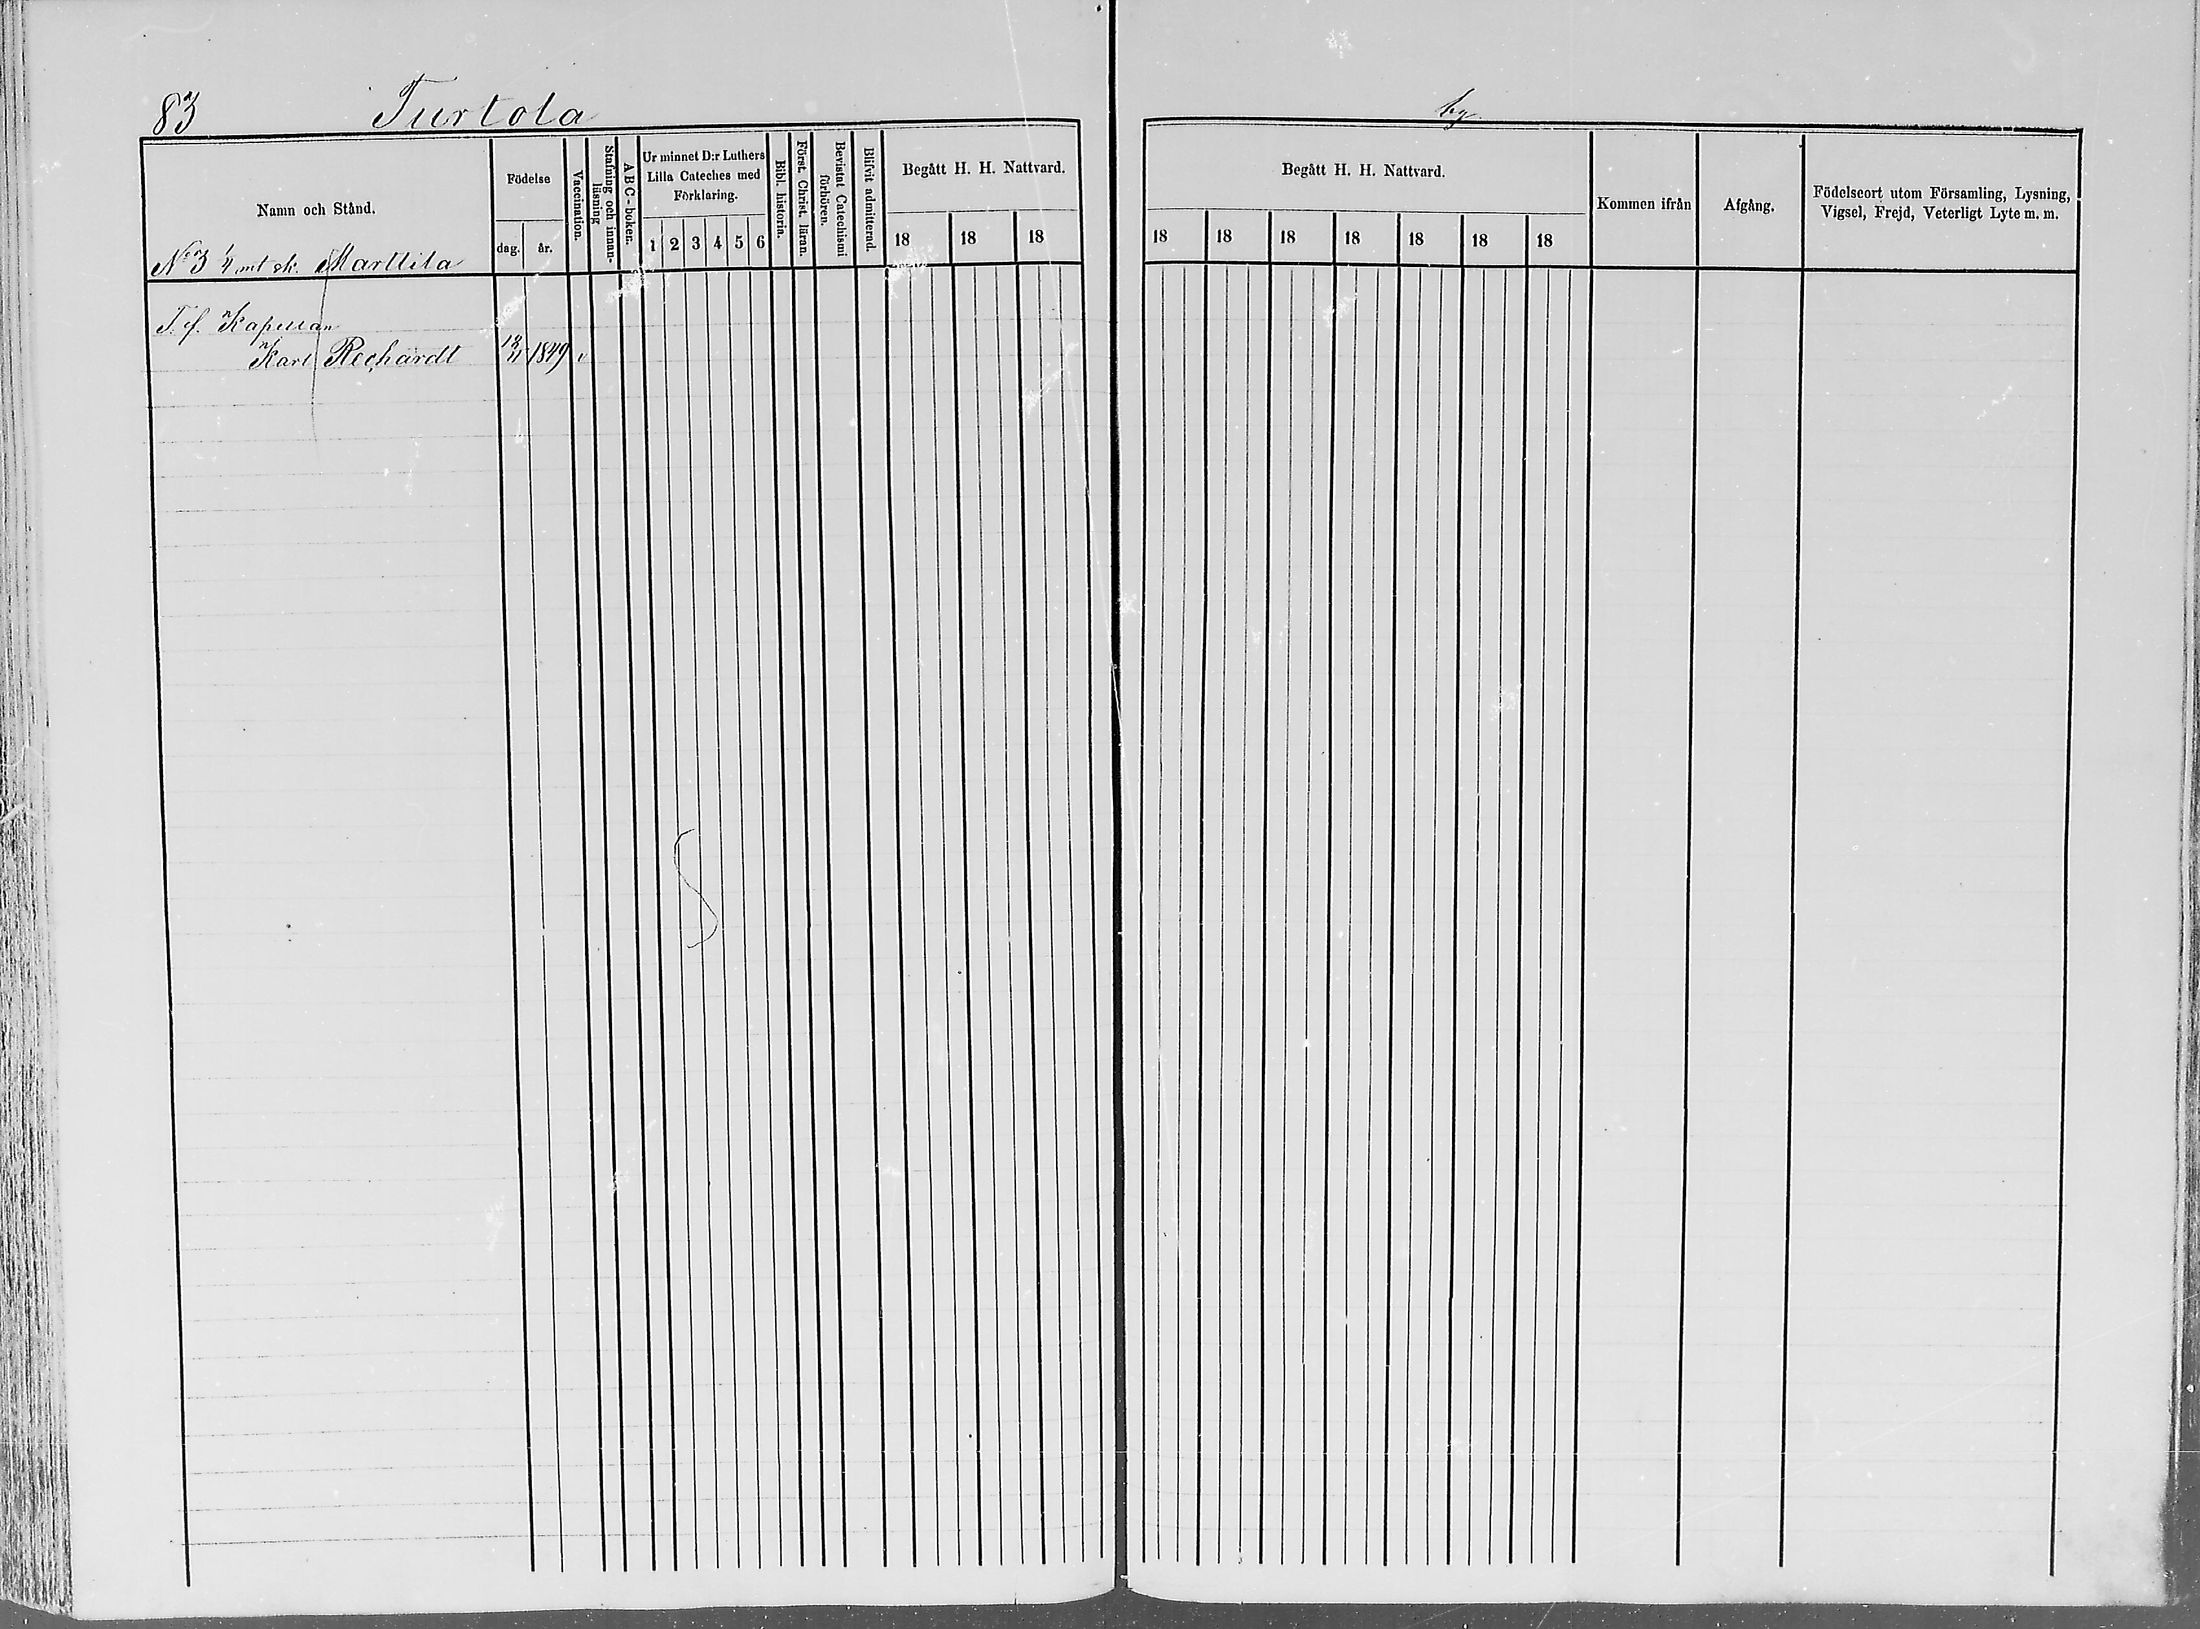 83 Turtola by
Namn och Stånd.
Födelse
dag. år.
Vaccination.
Stafning och innan-
läsning
A B C - boken.
Ur minnet D:r Luthers
Lilla Cateches med
Förklaring.
1 2 3 4 5 6
Bibl. historia.
Först. Christ. läran.
Bevistat Catechismi
förhören.
Blifvit admitterad.
Begått H. H. Nattvard.
18 18 18
Begått H. H. Nattvard.
18 18 18 18 18 18 18
Kommen ifrån
Afgång.
Födelseort utom Församling, Lysning,
Vigsel, Frejd, Veterligt Lyte m. m.
No 3 1/4 mt sk. Marttila
T. f. Kapellan
Karl Rechardt 1849 v